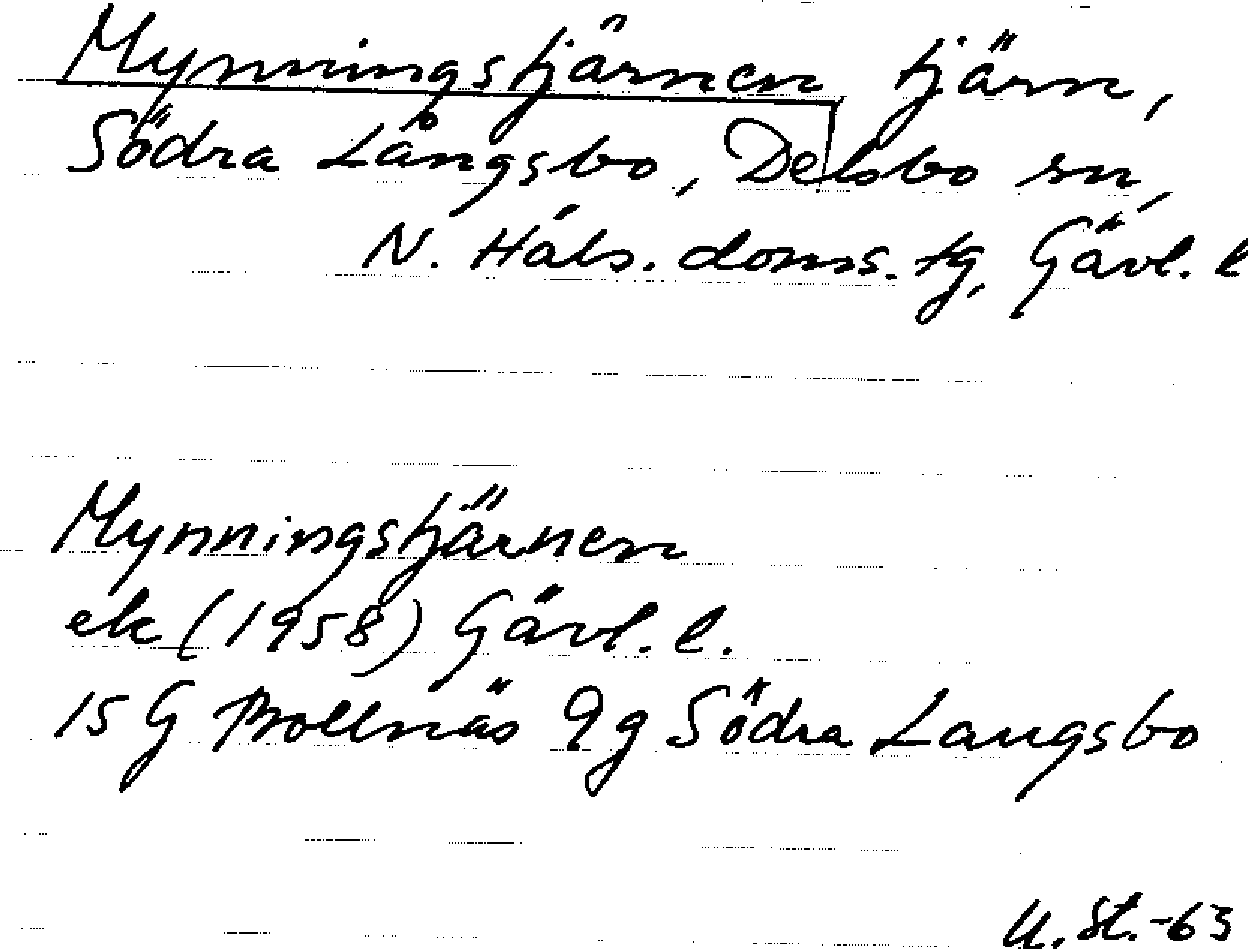 Mynningstjärnen tjärn,
Södra Långsbo, Delsbo sn,
N. Häls. doms. tg, Gävl. l
Mynningstjärnen
ek (1958) Gävl. l.
15 G Bollnäs 9g Södra Langsbo
U. St. -63